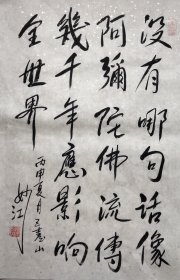 没有哪句话像
阿彌陀佛流傳
幾千年應影响
全世界
丙申夏月五臺山
妙江